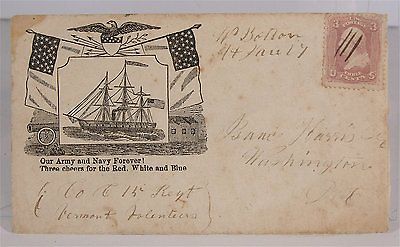 Bolton
Jan 17
U S
THREE CENTS
Isaac Harris
Washington
D C
Our Army and Navy Forever!
Three cheers for the Red, White and Blue
Co C 15 Regt
Vermont Volunteers